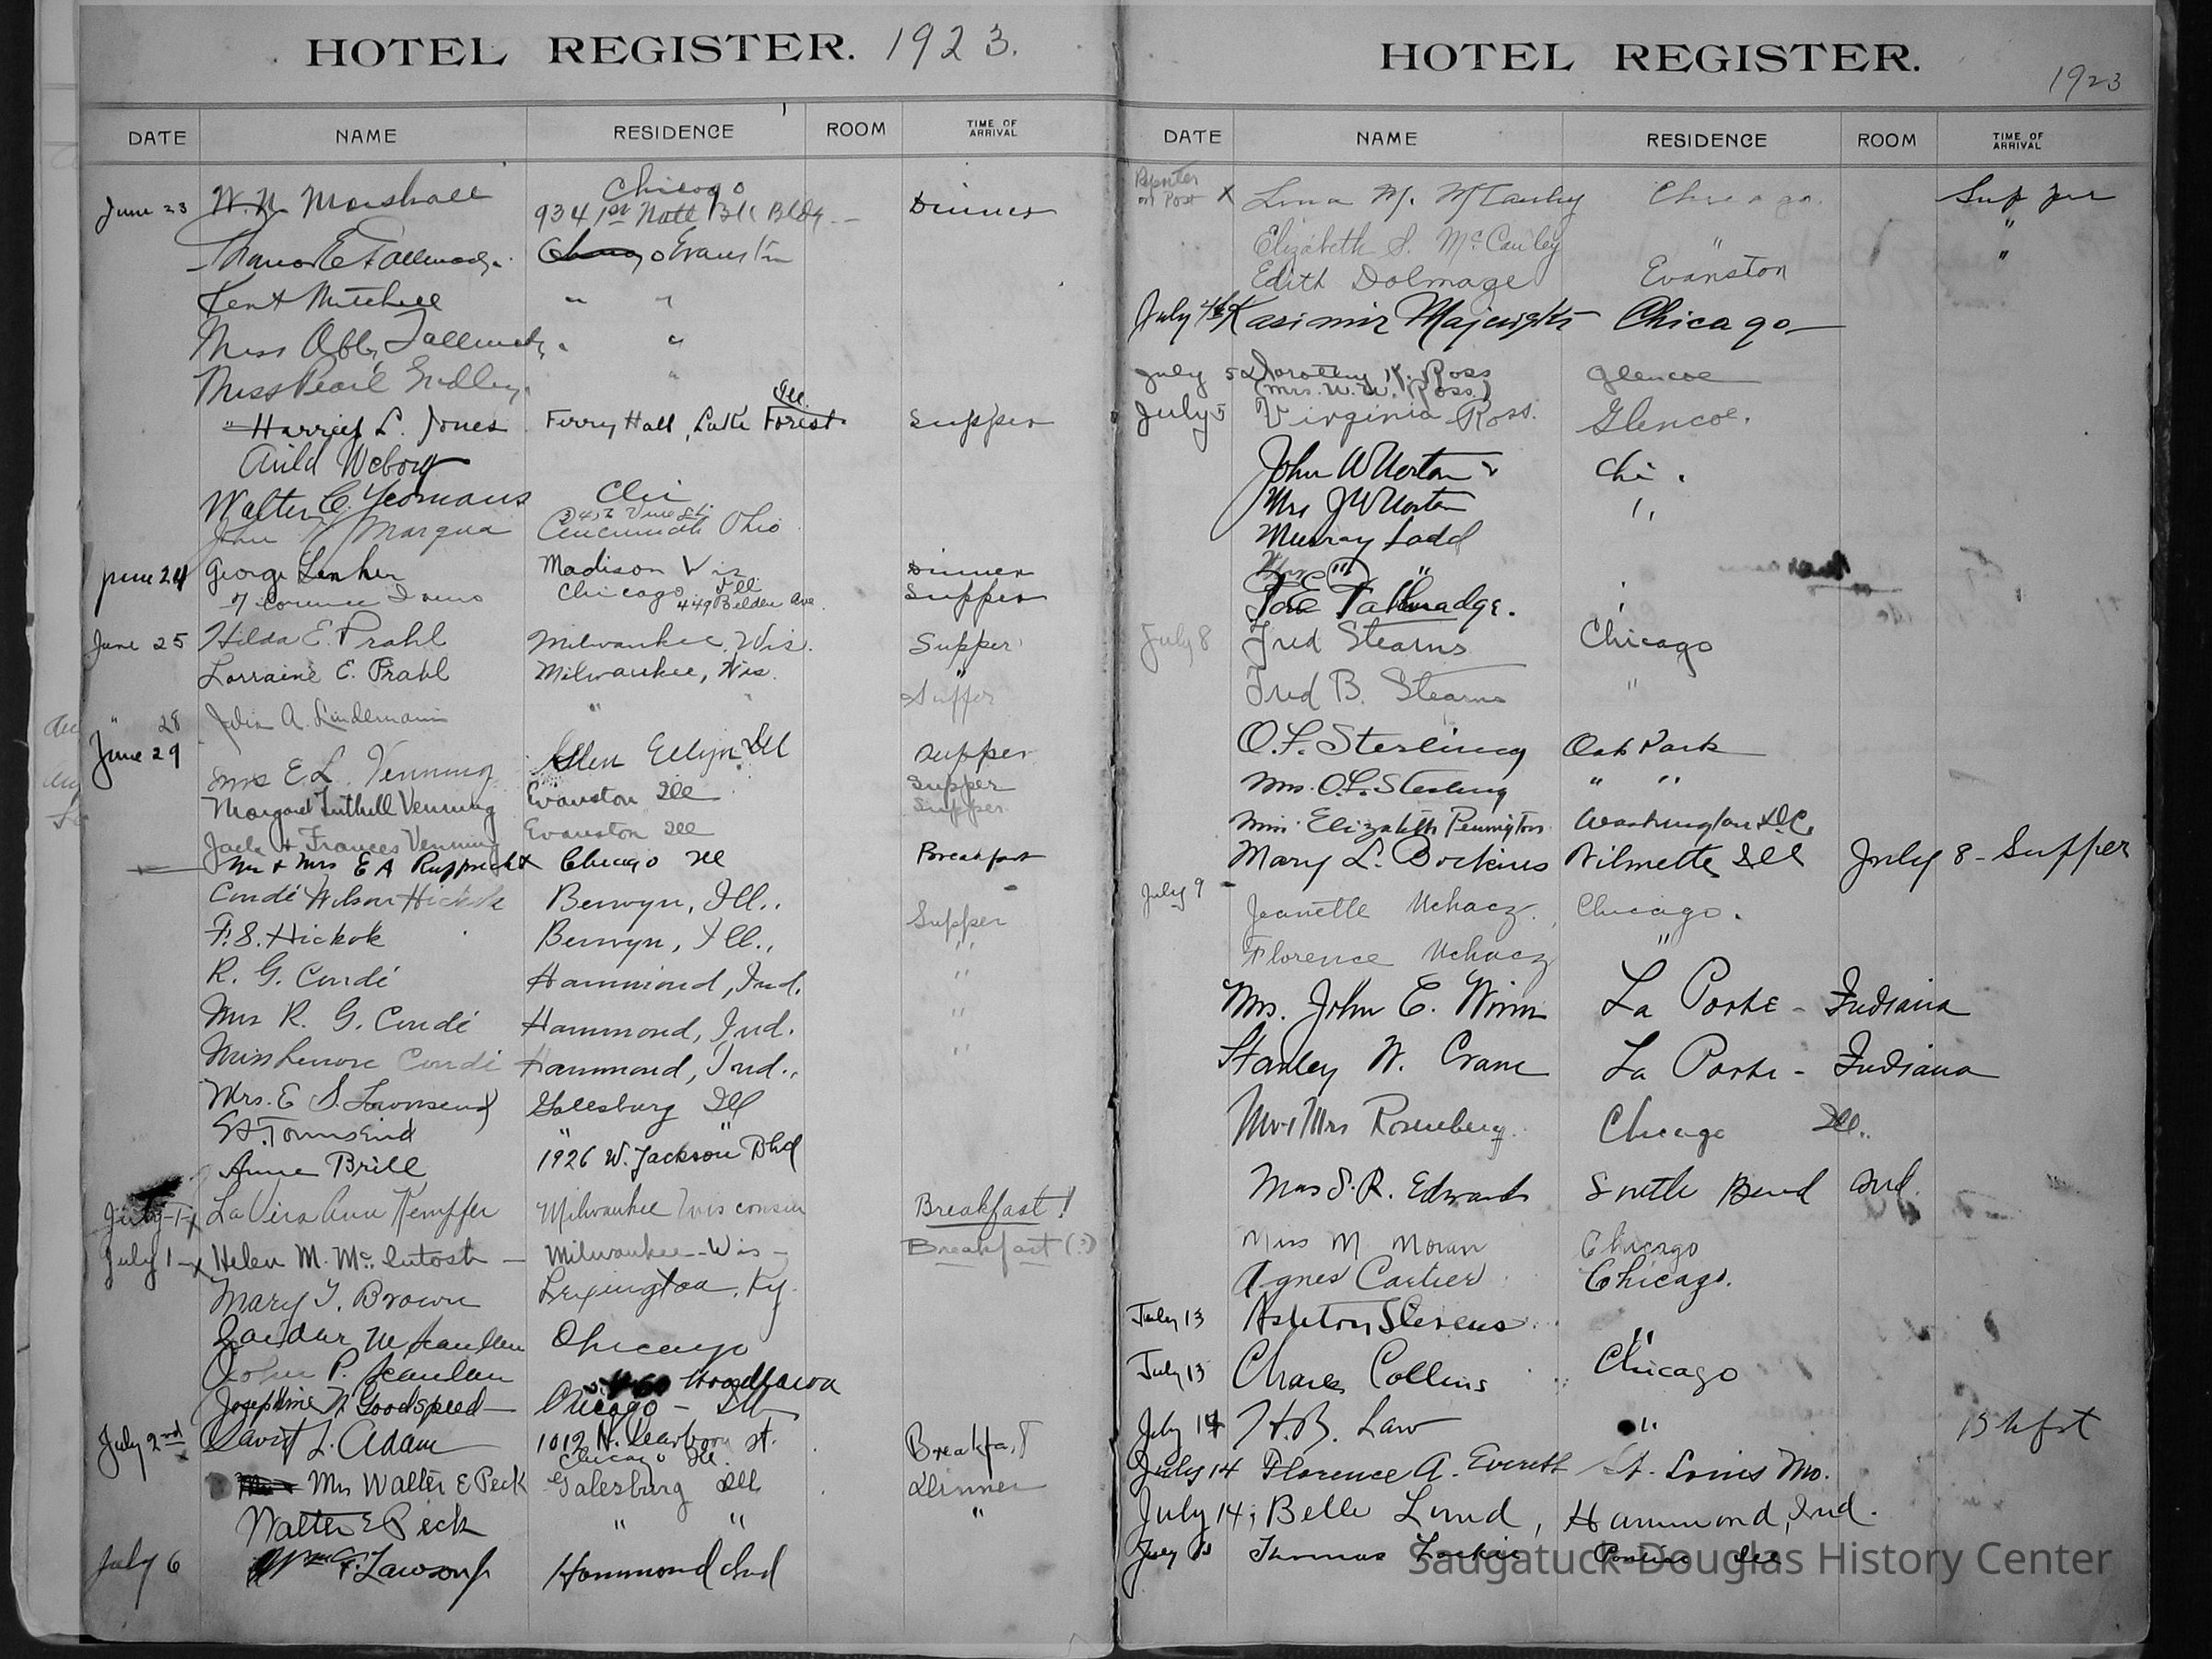 HOTEL REGISTER. 1923.
DATE NAME RESIDENCE ROOM TIME OF ARRIVAL
June 23 W. N. Marshall Chicago Dinner
934 1st Natl Bk Bldg. -
Thomas E Tallmadge. Evanston
Kent Mitchell " "
Miss Abby Tallmadge. "
Miss Pearl "
Harriet L. Jones Ferry Hall, Lake Forest Ill. Supper
Walter C. Yeomans Chi
John Marqua Cincinnati Ohio
June 24 George Madison Wis Dinner
Chicago Ill Supper
449 Belden Ave.
June 25 Hilda E. Prahl Milwaukee, Wis. Supper
Lorraine E. Prahl Milwaukee, Wis. "
" 28 A. Lindemann " " Supper
June 29 Mrs E. L. Venning Glen Ellyn Ill Supper
Margaret Tuthill Venning Evanston Ill Supper
Jack & Frances Venning Evanston Ill Supper
Mr & Mrs E A Rupprecht Chicago Ill Breakfast
Condé Wilson Hickok Berwyn, Ill.. Supper
F. S. Hickok Berwyn, Ill., "
R. G. Condé Hammond, Ind. "
Mrs R. G. Condé Hammond, Ind. "
Miss Lenore Condé Hammond, Ind., "
Mrs. E. S. Townsend Galesburg Ill
Townsend " "
Anne Brill 1926 W. Jackson Blvd
July-1-x LaVera Ann Kempffer Milwaukee Wisconsin Breakfast!
July 1-x Helen M. Mc.Intosh - Milwaukee - Wis - Breakfast (?)
Mary T. Brown Lexington, Ky.
Scanlan Chicago
John P. Scanlan
Woodlawn
Josephine Goodspeed Chicago - Ill
July 2nd David L. Adam 1012 N. Dearborn St. Breakfast
Chicago Ill.
Mrs Walter E Peck Galesburg Ill Dinner
Walter E Peck " " "
July 6 Lawson Jr Hammond Ind
HOTEL REGISTER.
1923
DATE NAME RESIDENCE ROOM TIME OF ARRIVAL
Reporter on Post x M. McCauley Chicago. Supper
Elizabeth S. McCauley " "
Edith Dolmage Evanston "
July 4th Kasimir Chicago
July 5 Dorothy Ross Glencoe
(Mrs. W. W. Ross)
July 5 Virginia Ross. Glencoe.
John W Norton Chi.
Mrs J W Norton "
Murray Ladd
Mrs " "
T E Tallmadge.
July 8 Fred Stearns Chicago
Fred B. Stearns "
O. L. Sterling Oak Park
Mrs. O. L. Sterling " "
Miss Elizabeth Pennington Washington D.C.
Mary L. Bockius Wilmette Ill July 8 - Supper
July 9 - Jeanette Uchacz. Chicago.
Florence Uchacz "
Mrs. John E. Winn La Porte - Indiana
Stanley W. Crane La Porte - Indiana
Mr & Mrs Rosenberg. Chicago Ill.
Mrs S. R. Edwards South Bend Ind.
Miss M Moran Chicago
Agnes Cartier Chicago.
July 13 Ashton Stevens "
July 13 Charles Collins Chicago
July 14 H. B. Law " Bkfst
July 14 Florence A. Everett St. Louis Mo.
July 14; Belle Lund, Hammond, Ind.
July Thomas Pontiac Ill
Saugatuck-Douglas History Center